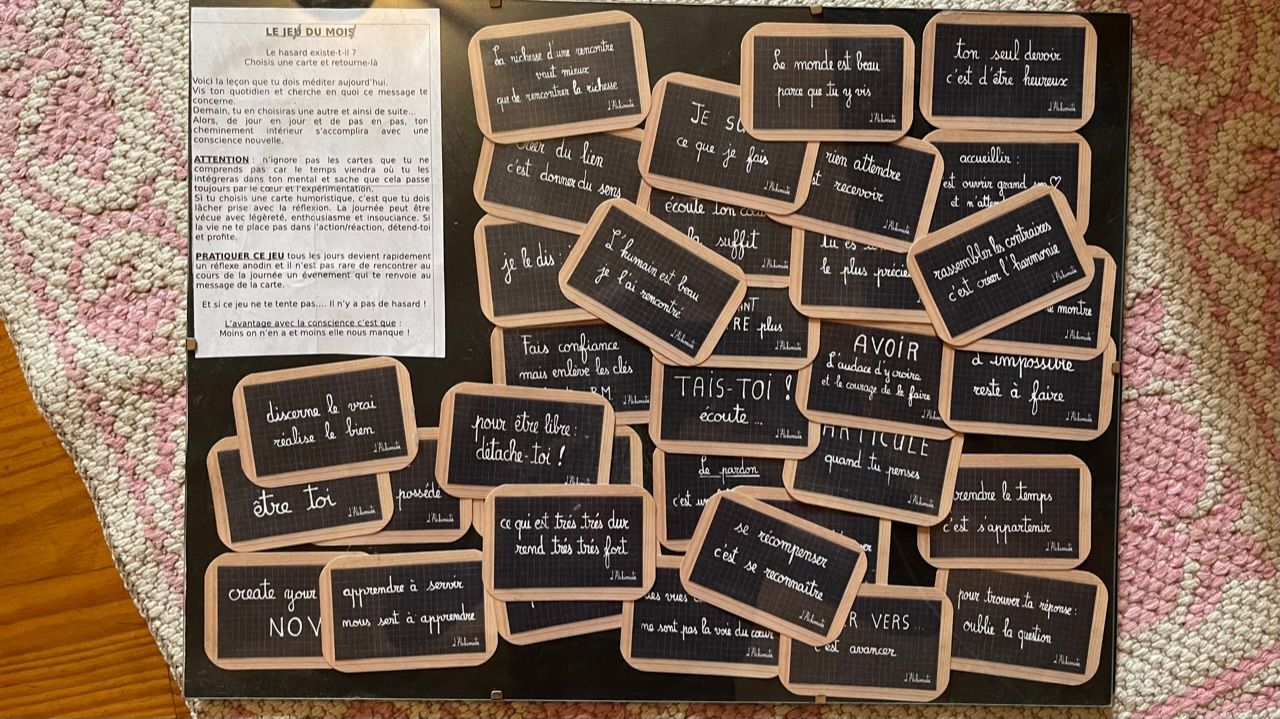 LE JEU DU MOIS
Le hasard existe-t-il ?
Choisis une carte et retourne-là
Voici la leçon que tu dois méditer aujourd'hui.
Vis ton quotidien et cherche en quoi ce message te
concerne.
Demain, tu en choisiras une autre et ainsi de suite...
Alors, de jour en jour et de pas en pas, ton
cheminement intérieur s'accomplira avec une
conscience nouvelle.
ATTENTION : n'ignore pas les cartes que tu ne
comprends pas car le temps viendra où tu les
intégreras dans ton mental et sache que cela passe
toujours par le cœur et l'expérimentation.
Si tu choisis une carte humoristique, c'est que tu dois
lâcher prise avec la réflexion. La journée peut être
vécue avec légèreté, enthousiasme et insouciance. Si
la vie ne te place pas dans l'action/réaction, détend-toi
et profite.
PRATIQUER CE JEU tous les jours devient rapidement
un réflexe anodin et il n'est pas rare de rencontrer au
cours de la journée un évenement qui te renvoie au
message de la carte.
Et si ce jeu ne te tente pas.... Il n'y a pas de hasard !
L'avantage avec la conscience c'est que :
Moins on n'en a et moins elle nous manque !
La richesse d'une rencontre
vaut mieux
que de rencontrer la richesse
L'Alchimiste
Le monde est beau
parce que tu y vis
L'Alchimiste
ton seul devoir
c'est d'être heureux
L'Alchimiste
créer du lien
c'est donner du sens
JE SU
ce que je fais
L'Alchimiste
rien attendre
st recevoir
L'Alchimiste
accueillir :
est ouvrir grand son ♡
et n'atte
écoute ton cœu
suffit
je le dis :
L'humain est beau
je l'ai rencontré
L'Alchimiste
tu es
le plus précie
rassembler les contraires
c'est créer l'harmonie
L'Alchimiste
NT
RE plus
L'Alchimiste
montre
L'Alchimiste
Fais confiance
mais enlève les clés
TAIS-TOI !
écoute ...
L'Alchimiste
AVOIR
L'audace d'y croire
et le courage de le faire
L'Alchimiste
d'impossible
reste à faire
L'Alchimiste
discerne le vrai
réalise le bien
L'Alchimiste
pour être libre :
détache-toi !
L'Alchimiste
ARTICULE
quand tu penses
L'Alchimiste
être toi
L'Alchimiste
possède
L'Alchimiste
Le pardon
c'est un
prendre le temps
c'est s'appartenir
L'Alchimiste
ce qui est trés trés dur
rend trés trés fort
L'Alchimiste
se recompenser
c'est se reconnaître
L'Alchimiste
create your
NOV
apprendre à servir
nous sert à apprendre
L'Alchimiste
les vues
ne sont pas la voie du cœur
L'Alchimiste
R VERS...
c'est avancer
L'Alchimiste
pour trouver ta réponse :
oublie la question
L'Alchimiste